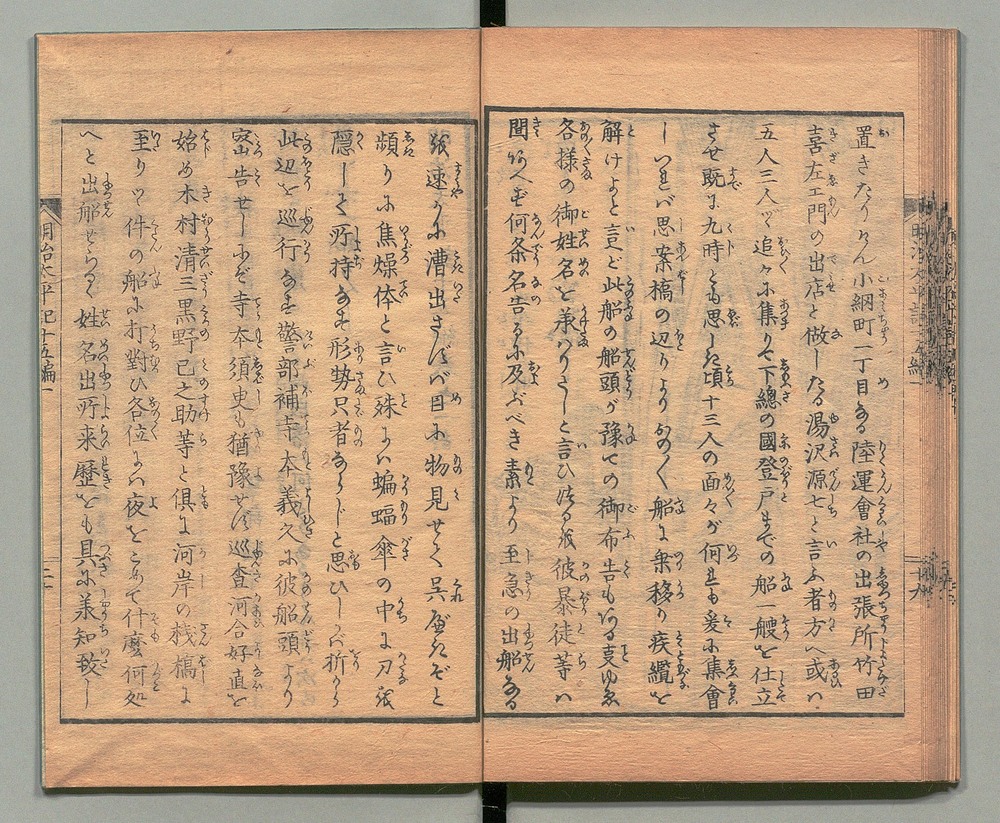 置きたりけん小網町一丁目なる陸運會社の出張所竹田
喜左エ門の出店と做したる湯沢源七と言ふ者方へ或ハ
五人三人ヅヽ追々に集りて下總の國登戸までの船一艘を仕立
させ既に九時とも思しき頃十三人の面々が何れも爰に集會
しつれバ思案橋の辺りよりおの〳〵船に乗移り疾纜を
解けよと言ど此船の船頭が豫ての御布告もある事ゆゑ
各様の御姓名を承ハりたしと言ひ
ける
を
彼暴徒等ハ
聞
あへず何条名告るに及ぶべき素より至急の出船なる
を速かに漕出さずバ目に物見せて呉んずぞと
頻りに焦燥体と言ひ殊にハ蝙蝠傘の中に刀を
隱して所持なす形勢只者ならじと思ひしかバ折から
此辺を巡行なす警部補寺本義久に彼船頭より
密告せしにぞ寺本須臾も猶豫せず巡査河合好直を
始め木村清三黒野巳之助等と倶に河岸の棧橋に
至りツヽ件の船に打對ひ各位にハ夜をこめて什麼何処
へと出船せらるゝ姓名出所来歴をも具に承知致し
明治太平記十五編一